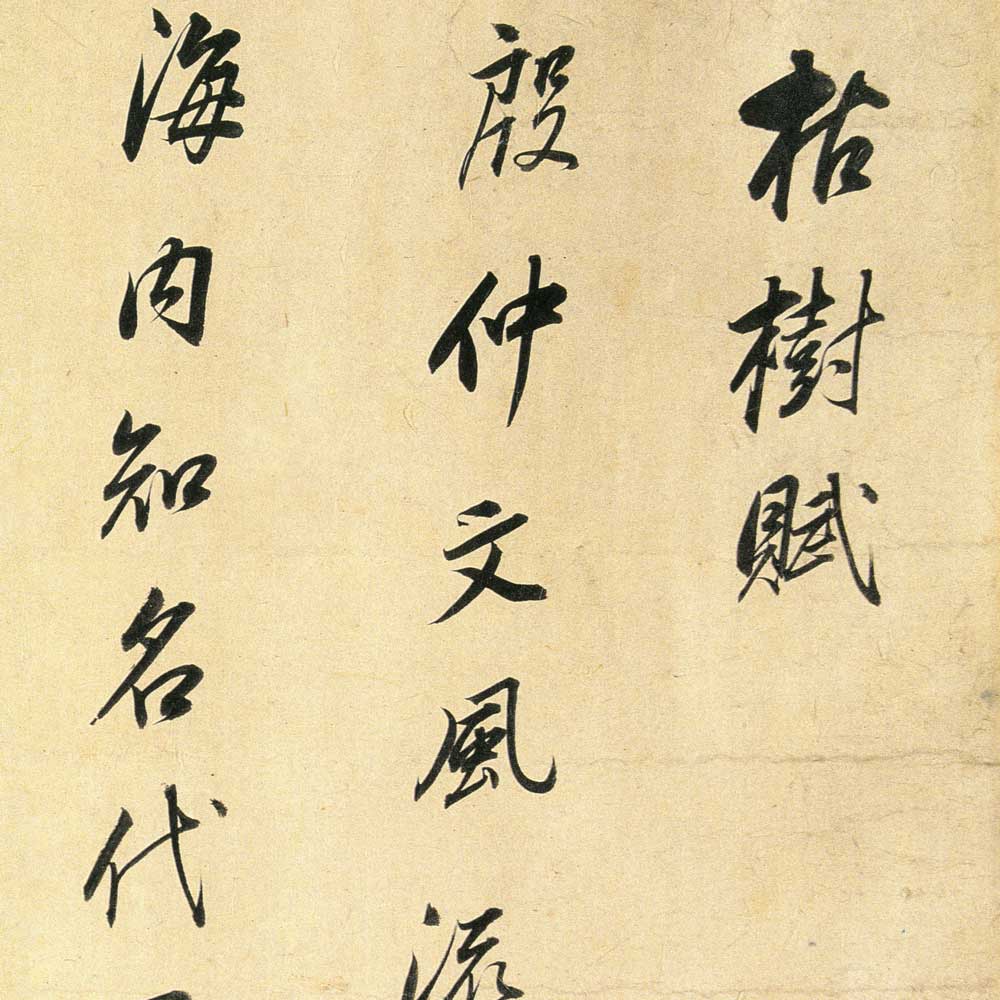 枯樹賦
殷仲文風流
海内知名代